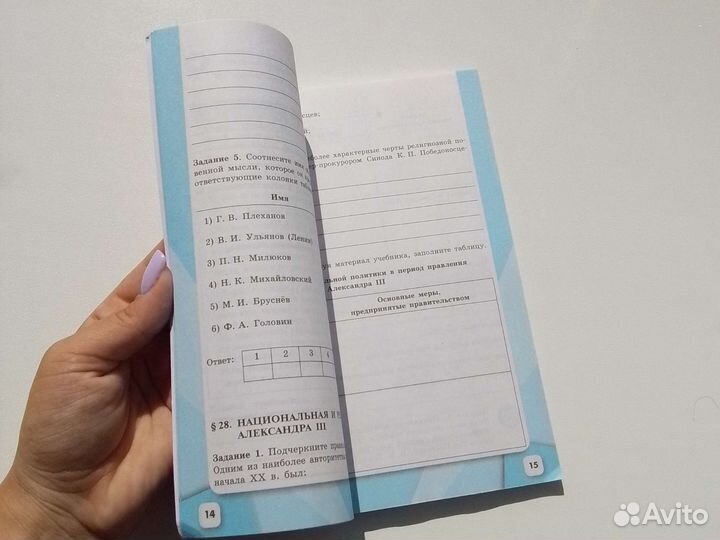 Задание 5. Соотнесите
венной мысли, которое он
ответствующие колонки
Имя
1) Г. В. Плеханов
2) В. И. Ульянов (Ленин)
3) П. Н. Милюков
4) Н. К. Михайловский
5) М. И. Бруснёв
6) Ф. А. Головин
Ответ: 1 2 3 4
§ 28. НАЦИОНАЛЬНАЯ И
АЛЕКСАНДРА III
Задание 1. Подчеркните
Одним из наиболее
начала XX в. был:
14
характерные черты религиозной по-
прокурором Синода К. П. Победоносце-
материал учебника, заполните таблицу.
политики в период правления
Александра III
Основные меры,
предпринятые правительством
15
Avito